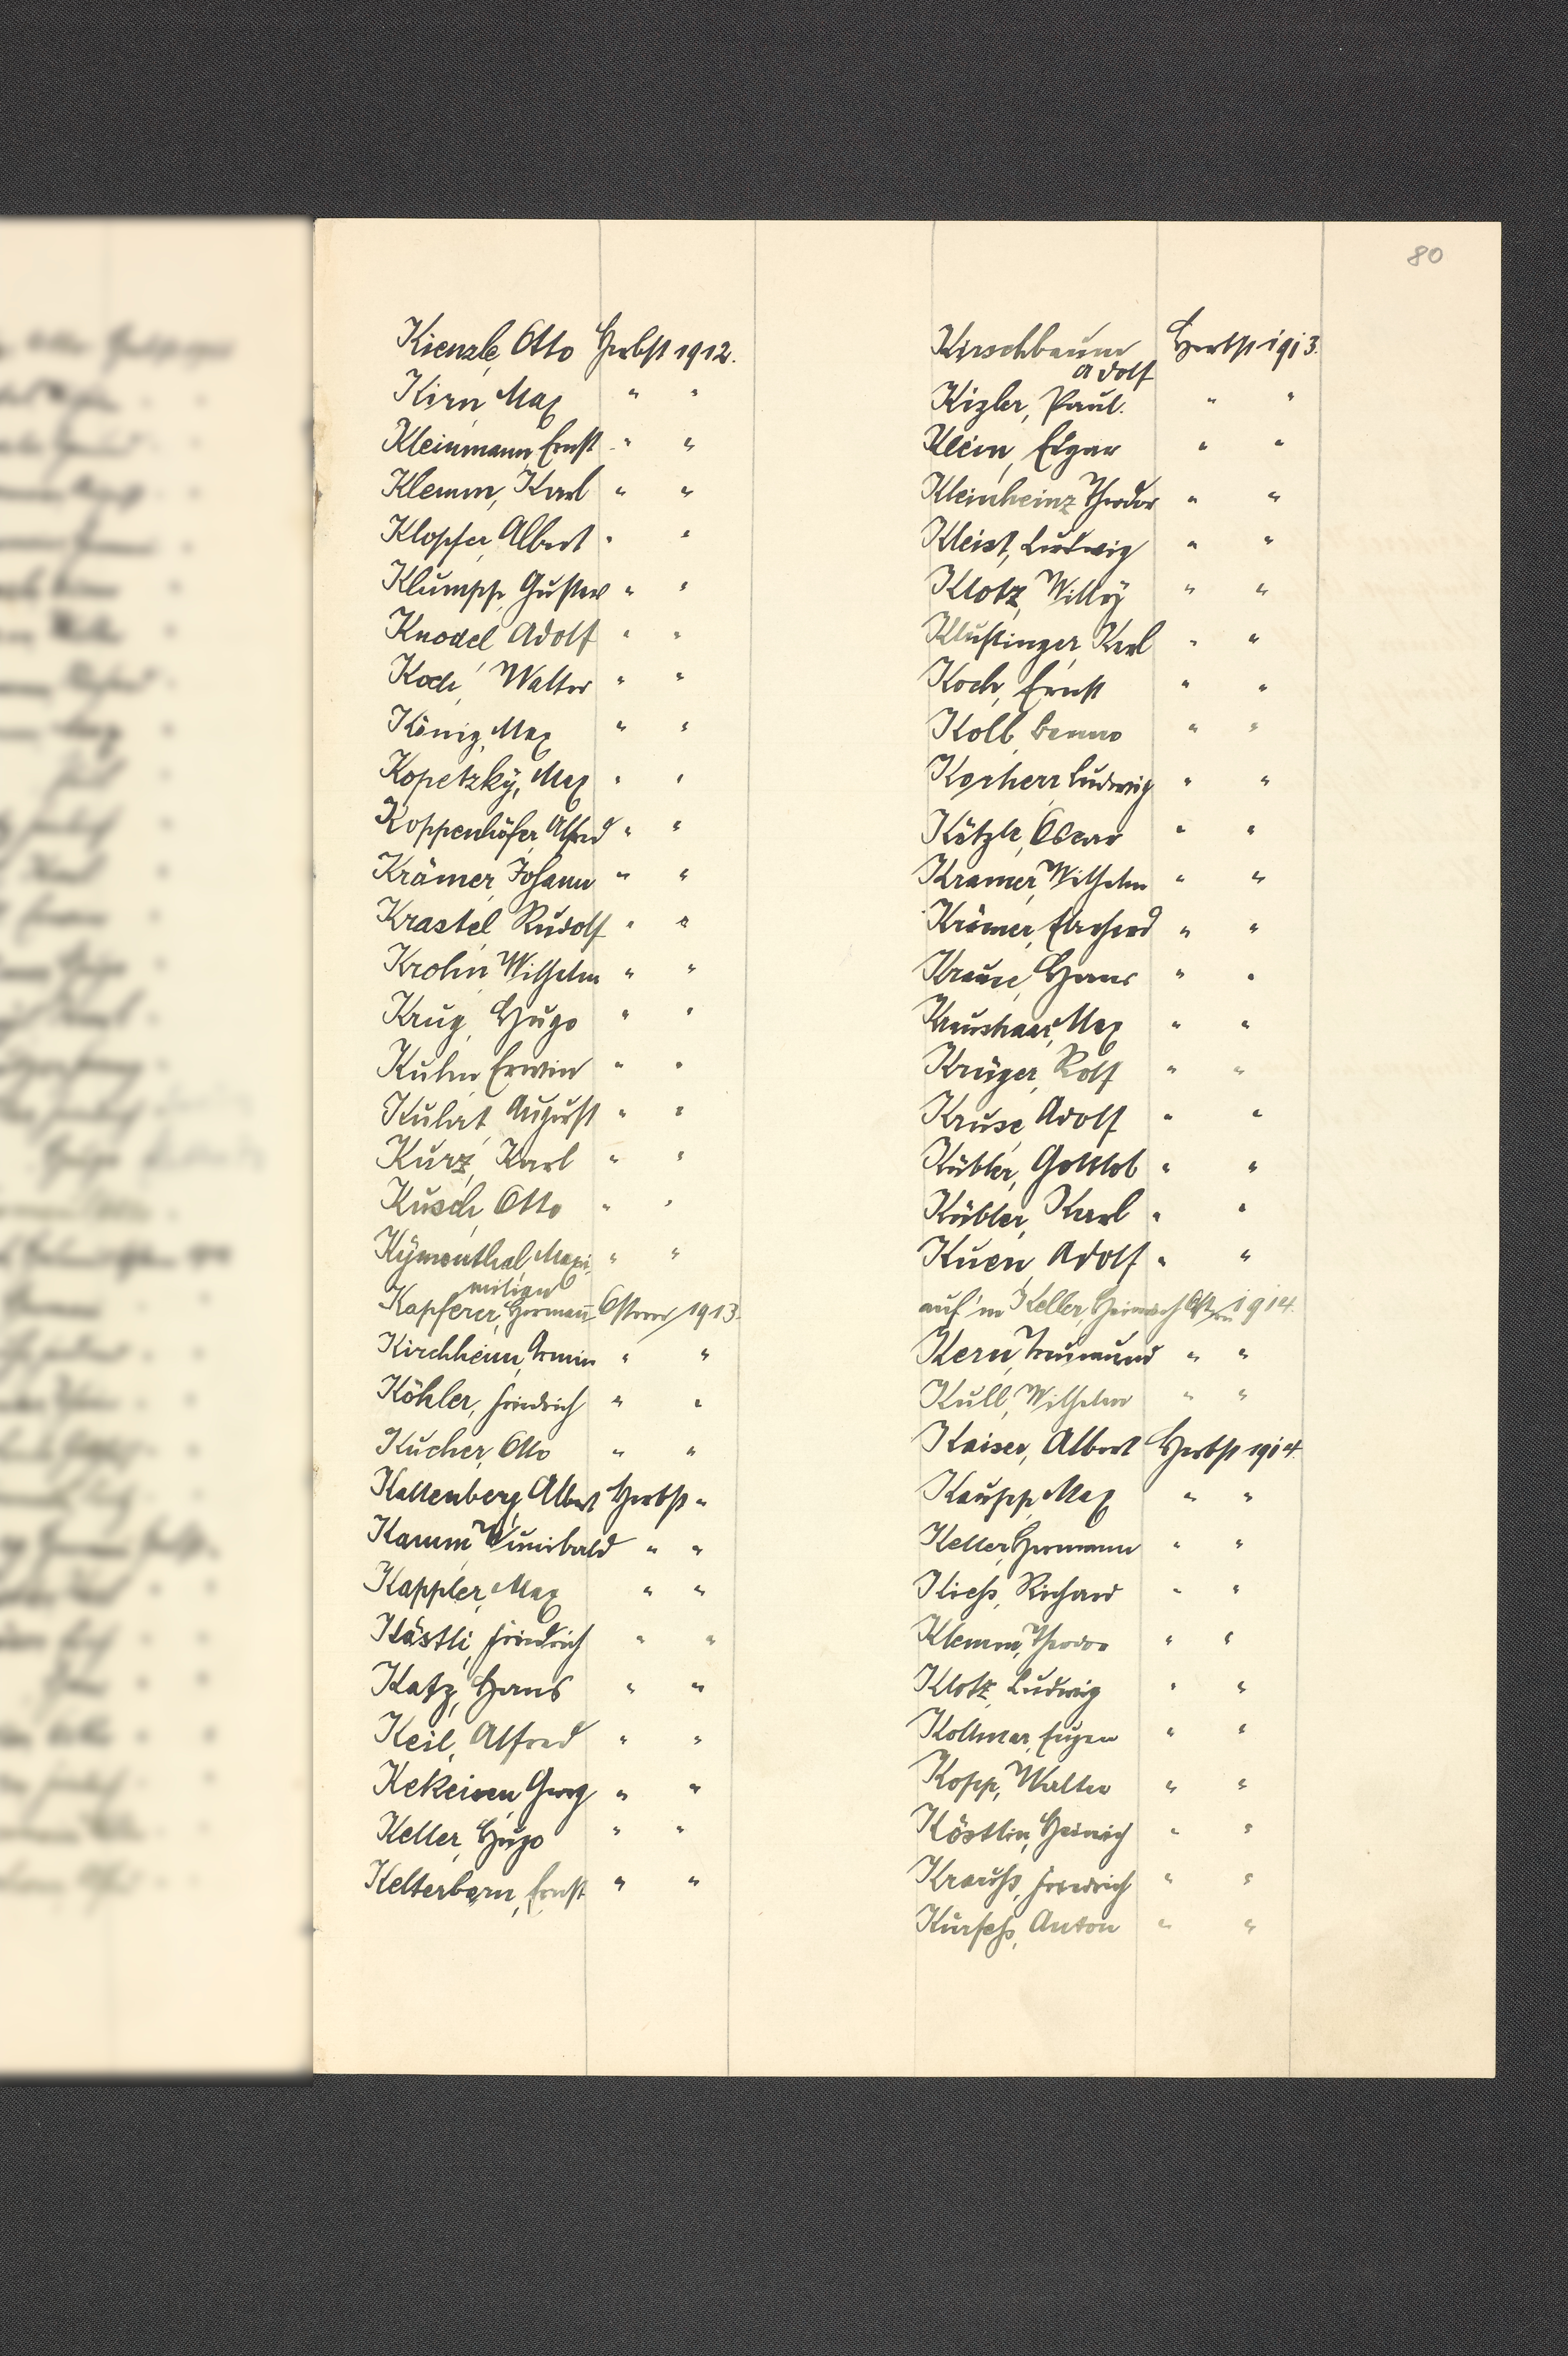 80
Kienzle, Otto Herbst 1912.
Kirn Max " "
Kleinmann, Ernst " "
Klemm, Karl " "
Klopfer, Albert " "
Klumpp, Gustav " "
Knodel, Adolf " "
Koch, Walter " "
König, Max " "
Kopetzky, Max " "
Koppenhöfer, Alfred " "
Krämer, Johann " "
Krastel Rudolf " "
Krohn, Wilhelm " "
Krug, Hugo " "
Kuhn, Erwin " "
August " "
Kurz, Karl " "
Kusch, Otto " "
Kymenthal, Maxi- " "
milian
Kapferer, Hermann Ostern 1913
Kirchheim, Armin " "
Köhler, Friedrich " "
Kucher, Otto " "
Kaltenberg, Albert Herbst "
Kamm, Wunibald " "
Kappler, Max " "
Kästli, Friedrich " "
Katz, Hans " "
Keil, Alfred " "
Kekeisen, Georg " "
Keller, Hugo " "
Kelterborn, Ernst " "
Kirschbaum Herbst 1913.
Adolf
Kizler, Paul. " "
Klein, Edgar " "
Kleinheinz Theodor " "
Kleist, Ludwig " "
Klotz, Willy " "
Klustinger, Karl " "
Koch, Ernst " "
Koll, Benno " "
Korherr Ludwig " "
Kötzle, Oscar " "
Kramer, Wilhelm " "
Krämer, Eberhard " "
Hans " "
Kraushaar, Max " "
Krüger, Rolf " "
Kruse, Adolf " "
Kübler, Gottlob " "
Kübler, Karl " "
Kuen, Adolf " "
Keller, Heinrich Ostern 1914.
Kern, Treumund " "
Kull, Wilhelm " "
Kaiser, Albert Herbst 1914.
Kaupp, Max " "
Keller, Hermann " "
Kieß, Richard " "
Klemm, Theodor " "
Klotz, Ludwig " "
Kollmar, Eugen " "
Kopp, Walter " "
Köstlin, Heinrich " "
Krauß, Friedrich " "
Anton " "